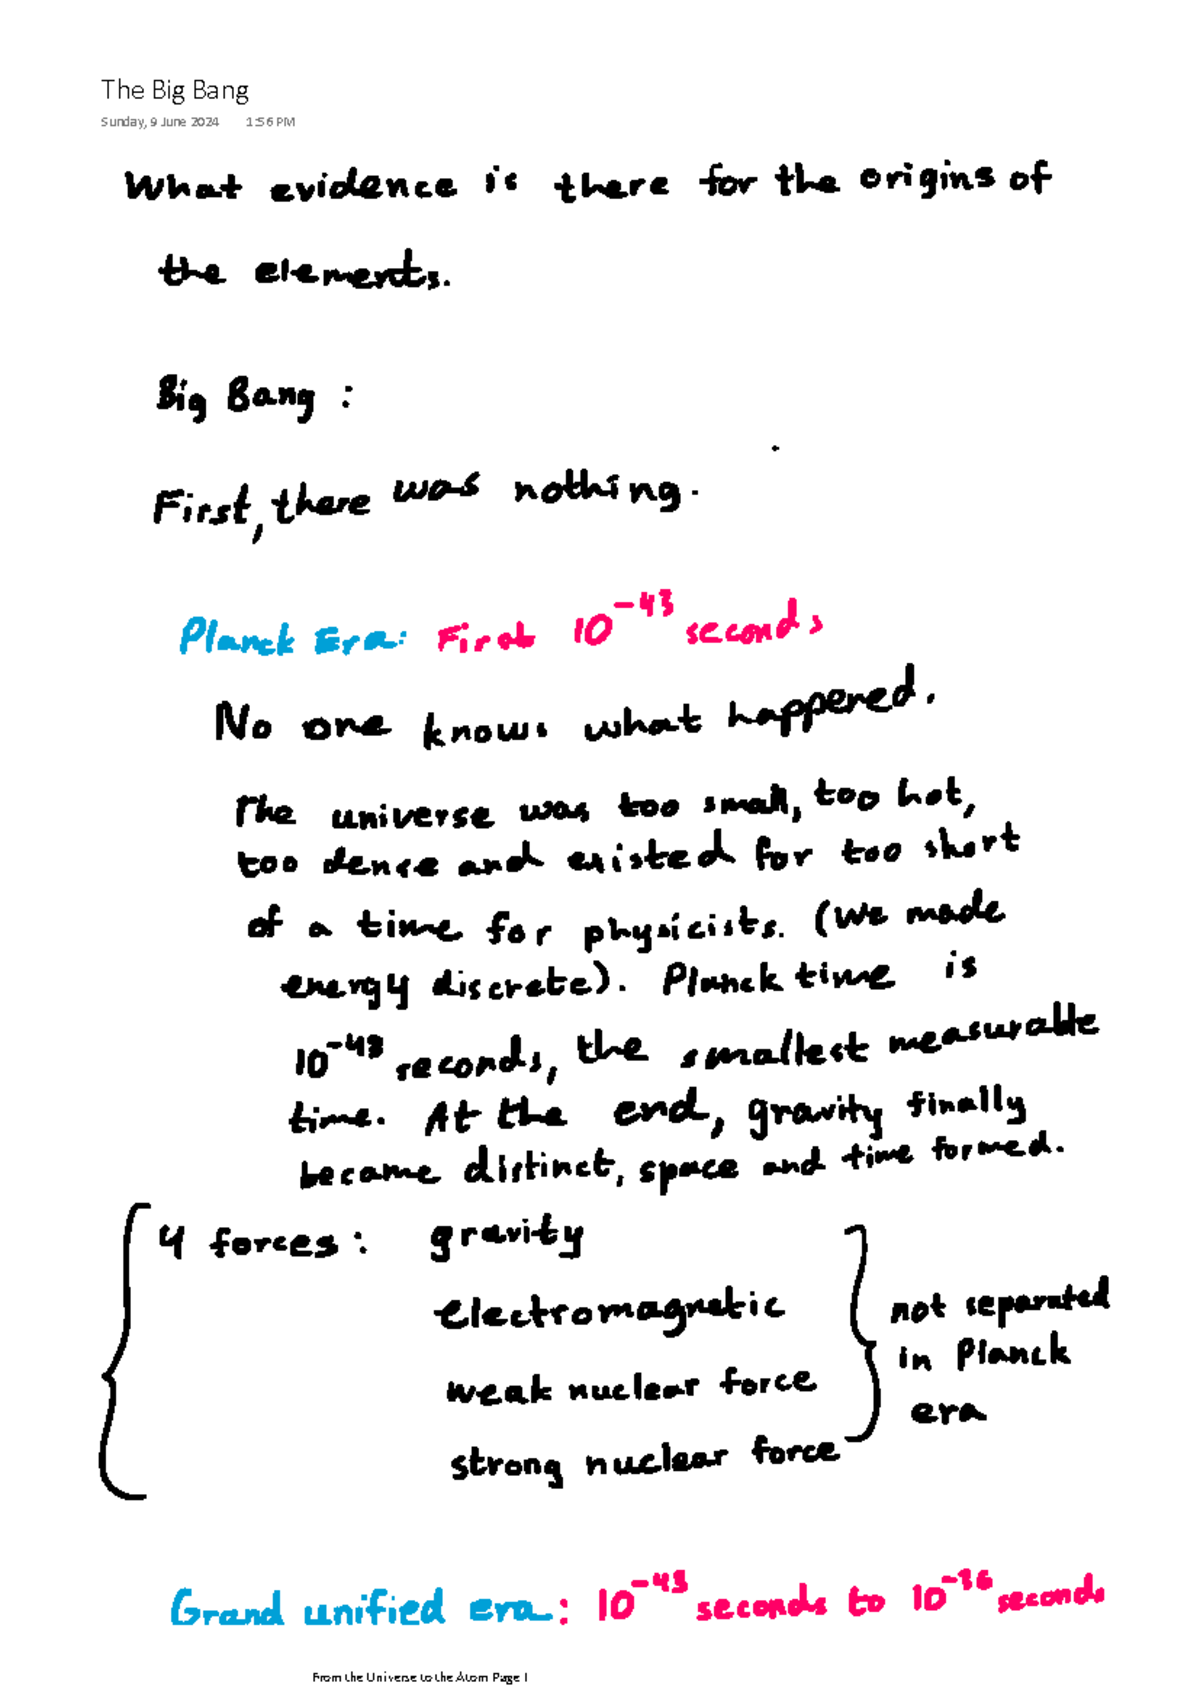 The Big Bang
Sunday, 9 June 2024 1:56 PM
What evidence is there for the origins of
the elements.
Big Bang :
First, there was nothing.
Planck Era: First 10^-43 seconds
No one knows what happened.
The universe was too small, too hot,
too dense and existed for too short
of a time for physicists. (We made
energy discrete). Planck time is
10^-43 seconds, the smallest measurable
time. At the end, gravity finally
became distinct, space and time formed.
4 forces : gravity
electromagnetic
weak nuclear force
strong nuclear force
not separated
in Planck
era
Grand unified era: 10^-43 seconds to 10^-36 seconds
From the Universe to the Atom Page 1